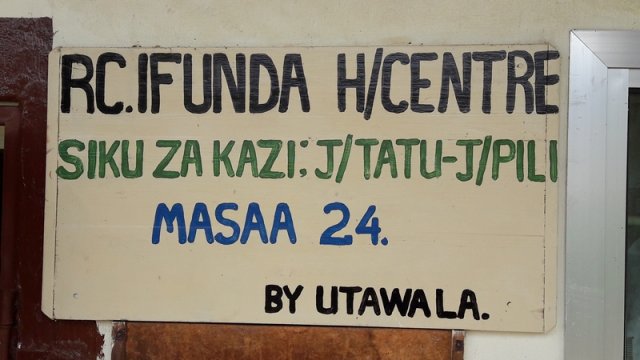 RC.IFUNDA H/CENTRE
SIKU ZA KAZI: J/TATU-J/PILI
MASAA 24.
BY UTAWALA.